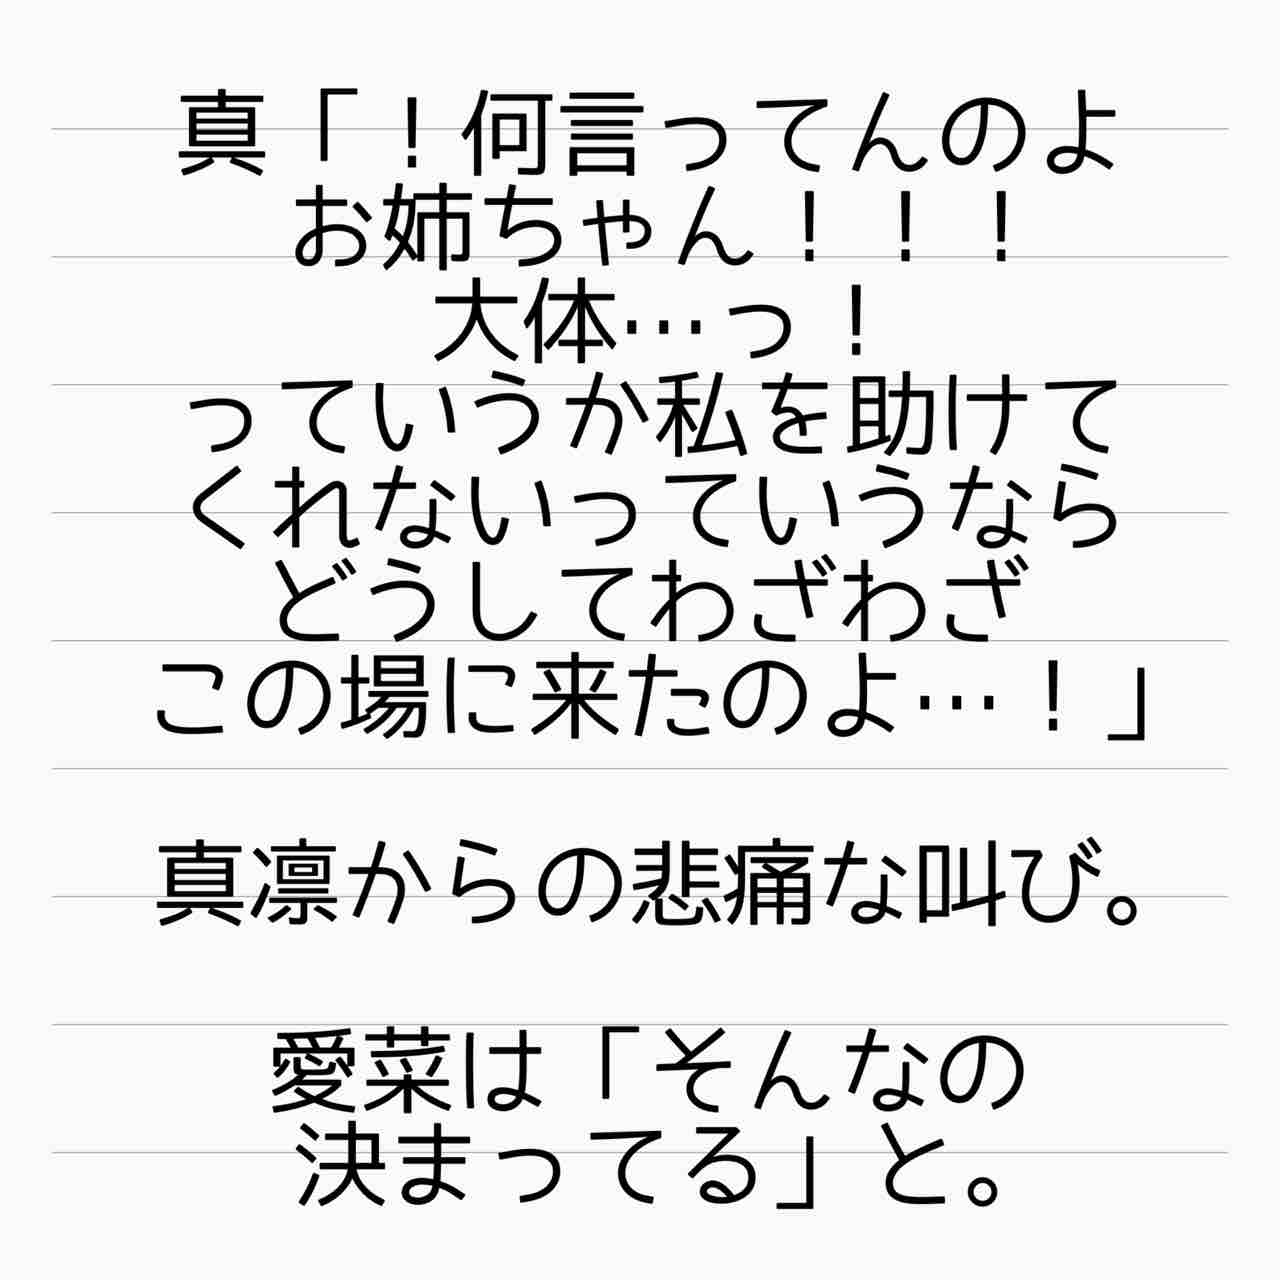 真「！何言ってんのよ
お姉ちゃん！！！
大体…っ！
っていうか私を助けて
くれないっていうなら
どうしてわざわざ
この場に来たのよ…！」
真凛からの悲痛な叫び。
愛菜は「そんなの
決まってる」と。